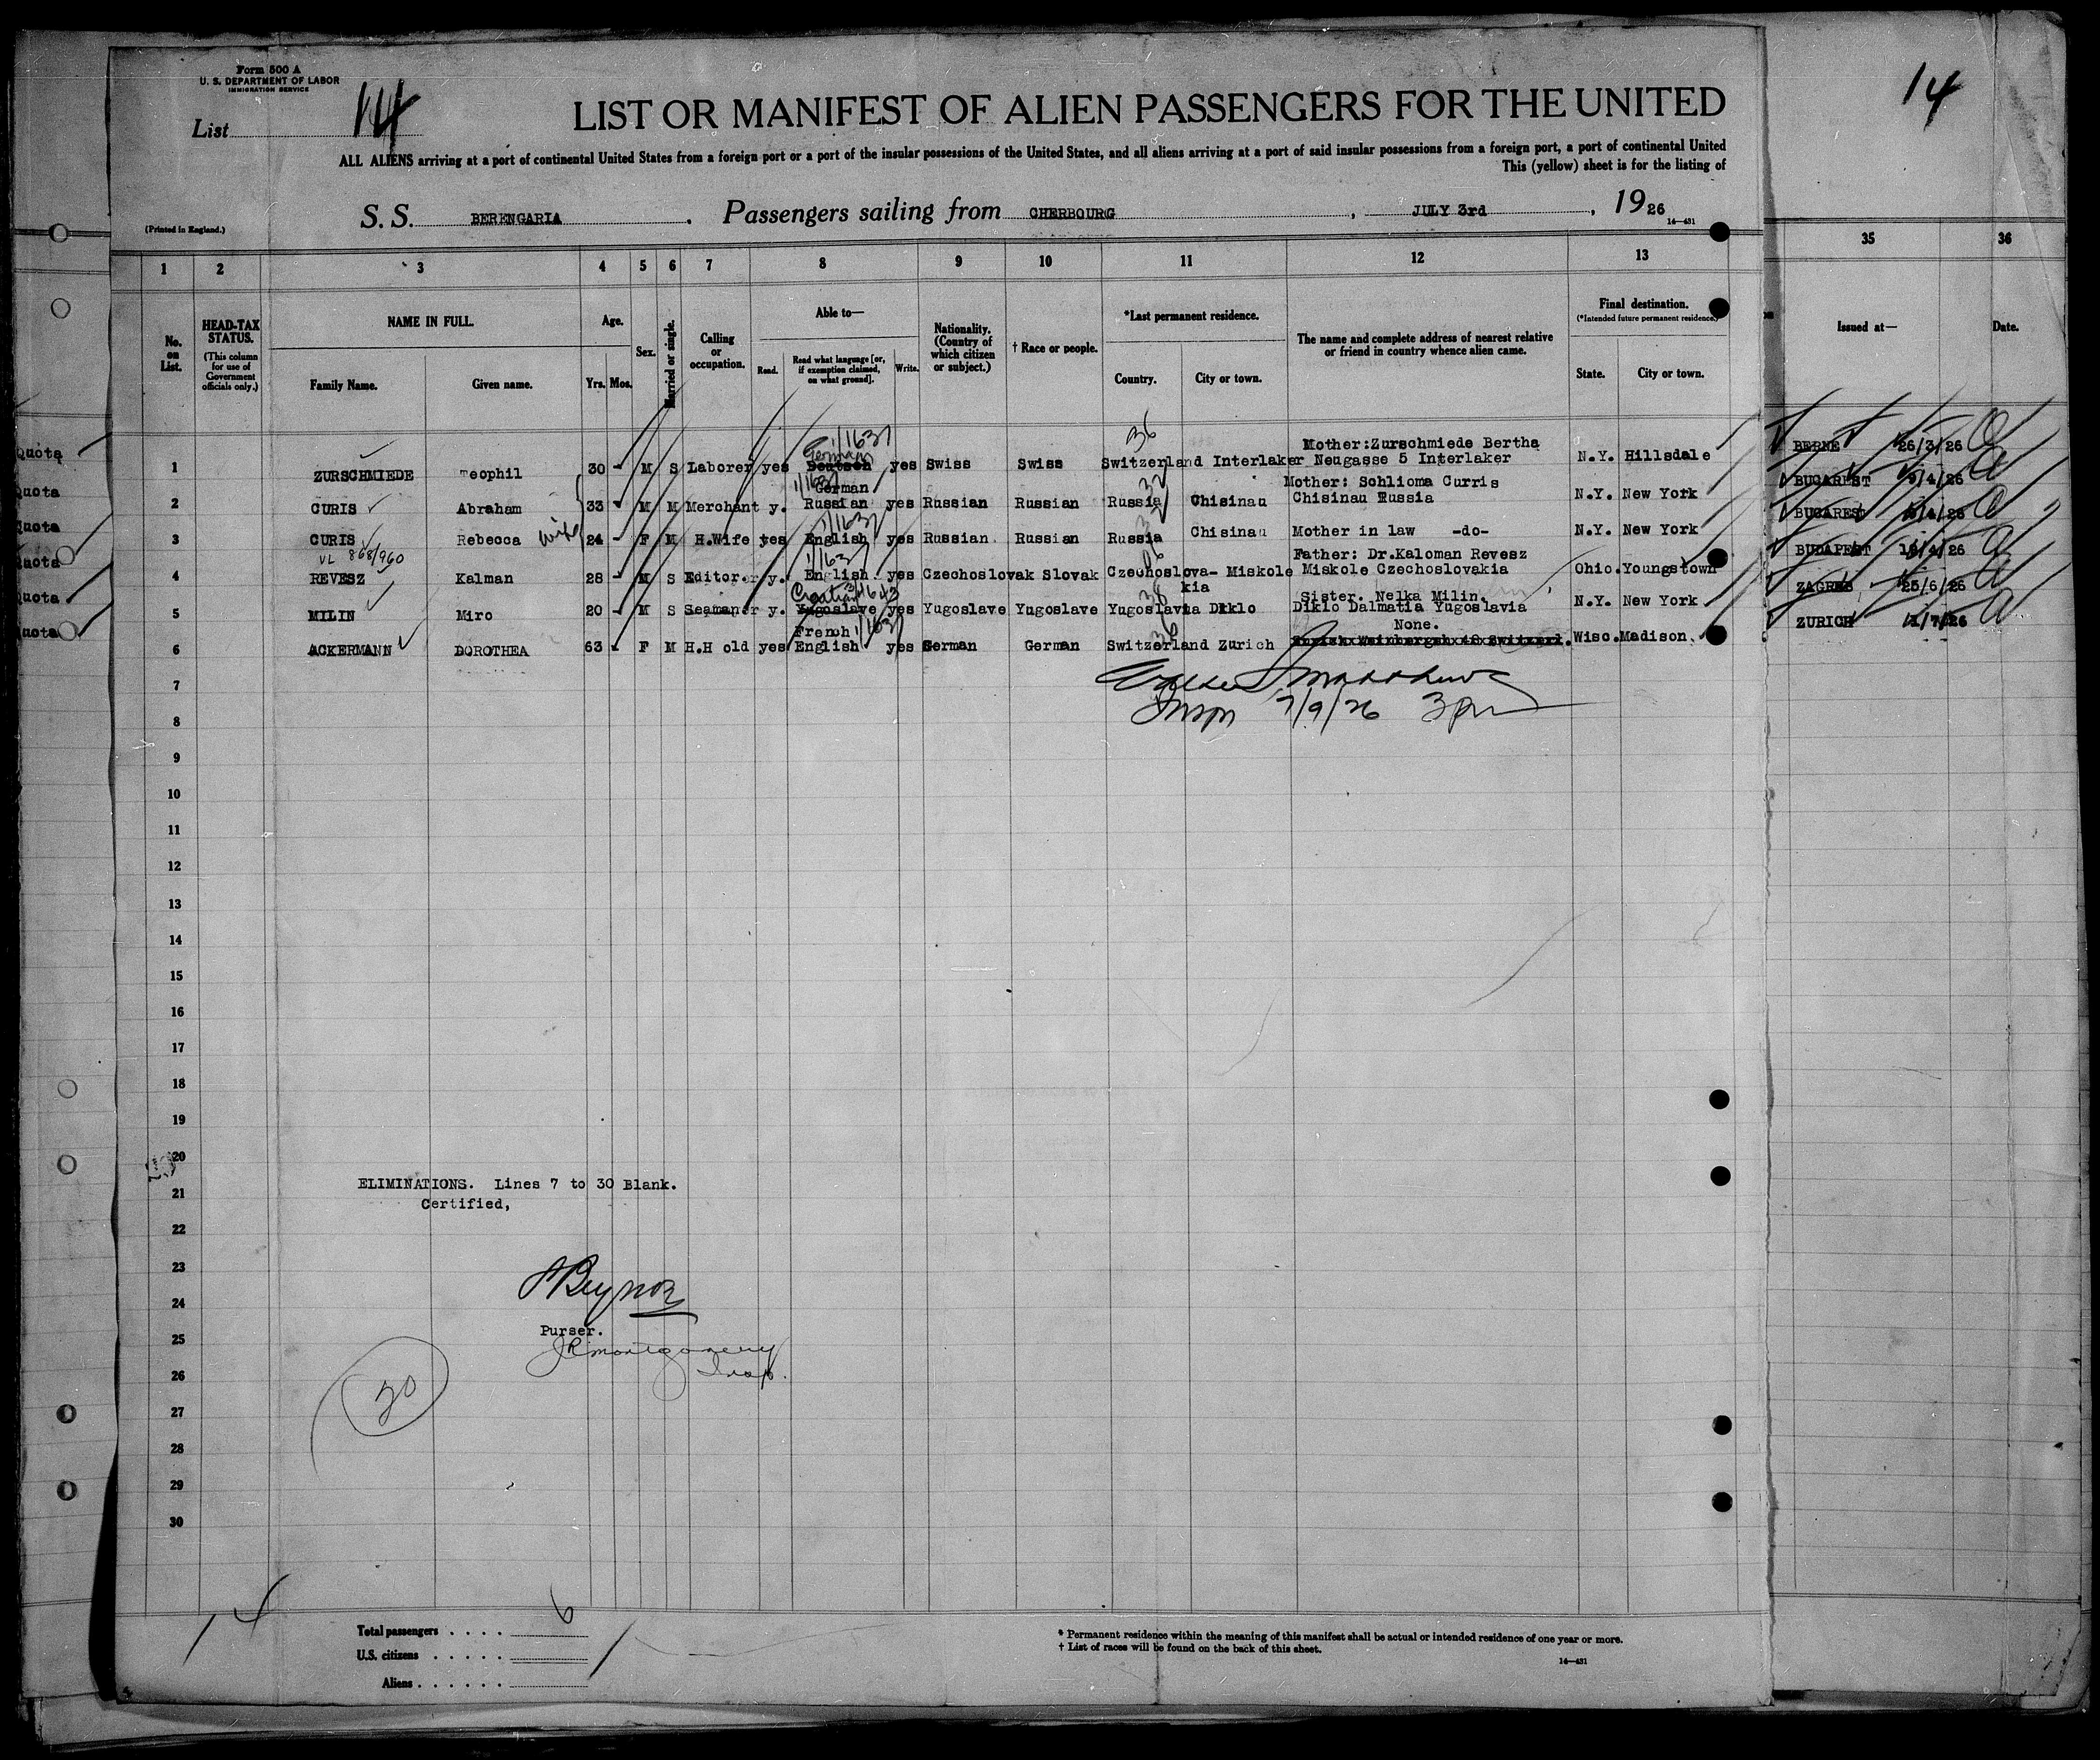 Form 500 A
U. S. DEPARTMENT OF LABOR
IMMIGRATION SERVICE
List 14
14
LIST OR MANIFEST OF ALIEN PASSENGERS FOR THE UNITED
ALL ALIENS arriving at a port of continental United States from a foreign port or a port of the insular possessions of the United States, and all aliens arriving at a port of said insular possessions from a foreign port, a port of continental United
This (yellow) sheet is for the listing of
S. S. BERENGARIA. Passengers sailing from CHERBOURG, JULY 3rd, 1926
(Printed in England.)
14—431
1 2 3 4 5 6 7 8 9 10 11 12 13 35 36
No. on List.
HEAD-TAX STATUS.
(This column for use of Government officials only.)
NAME IN FULL.
Family Name. Given name.
Age.
Yrs. Mos.
Sex.
Married or single.
Calling or occupation.
Able to—
Read. Read what language [or, if exemption claimed, on what ground]. Write.
Nationality. (Country of which citizen or subject.)
† Race or people.
*Last permanent residence.
Country. City or town.
The name and complete address of nearest relative or friend in country whence alien came.
Final destination.
(*Intended future permanent residence.)
State. City or town.
Issued at— Date.
36
Quota
German
Mother:Zurschmiede Bertha
1 ZURSCHMIEDE Teophil 30 M S Laborer yes Deutsch yes Swiss Swiss Switzerland Interlaker Neugasse 5 Interlaker N.Y. Hillsdale BERNE 26/3/26
Quota
German
Mother: Schlioma Curris
2 CURIS Abraham 33 M M Merchant y. Russian yes Russian Russian Russia Chisinau Chisinau Russia N.Y. New York BUCAREST 9/4/26
Quota
wife
3 CURIS Rebecca 24 F M H.Wife yes English yes Russian Russian Russia Chisinau Mother in law -do- N.Y. New York BUCAREST
VL 868/960
Quota
Father: Dr.Kaloman Revesz
4 REVESZ Kalman 28 M S Editor.r y. English. yes Czechoslovak Slovak Czechoslova- Miskole Miskole Czechoslovakia Ohio. Youngstown BUDAPEST
kia
Quota
Croatian
Sister. Nelka Milin.
5 MILIN Miro 20 M S Seaman.r y. Yugoslave yes Yugoslave Yugoslave Yugoslavia Diklo Diklo Dalmatia Yugoslavia N.Y. New York ZAGREB 25/6/26
Quota
French
None.
6 ACKERMANN DOROTHEA 63 F M H.H old yes English yes German German Switzerland Zurich Wisc. Madison. ZURICH
7
Insp 7/9/26 3pm
8
9
10
11
12
13
14
15
16
17
18
19
20
21
22
23
24
25
26
27
28
29
30
ELIMINATIONS. Lines 7 to 30 Blank.
Certified,
Purser.
JR Montgomery
Insp.
30
14
Total passengers . . . . 6
U.S. citizens . . . . .
Aliens . . . . . .
* Permanent residence within the meaning of this manifest shall be actual or intended residence of one year or more.
† List of races will be found on the back of this sheet.
14—431